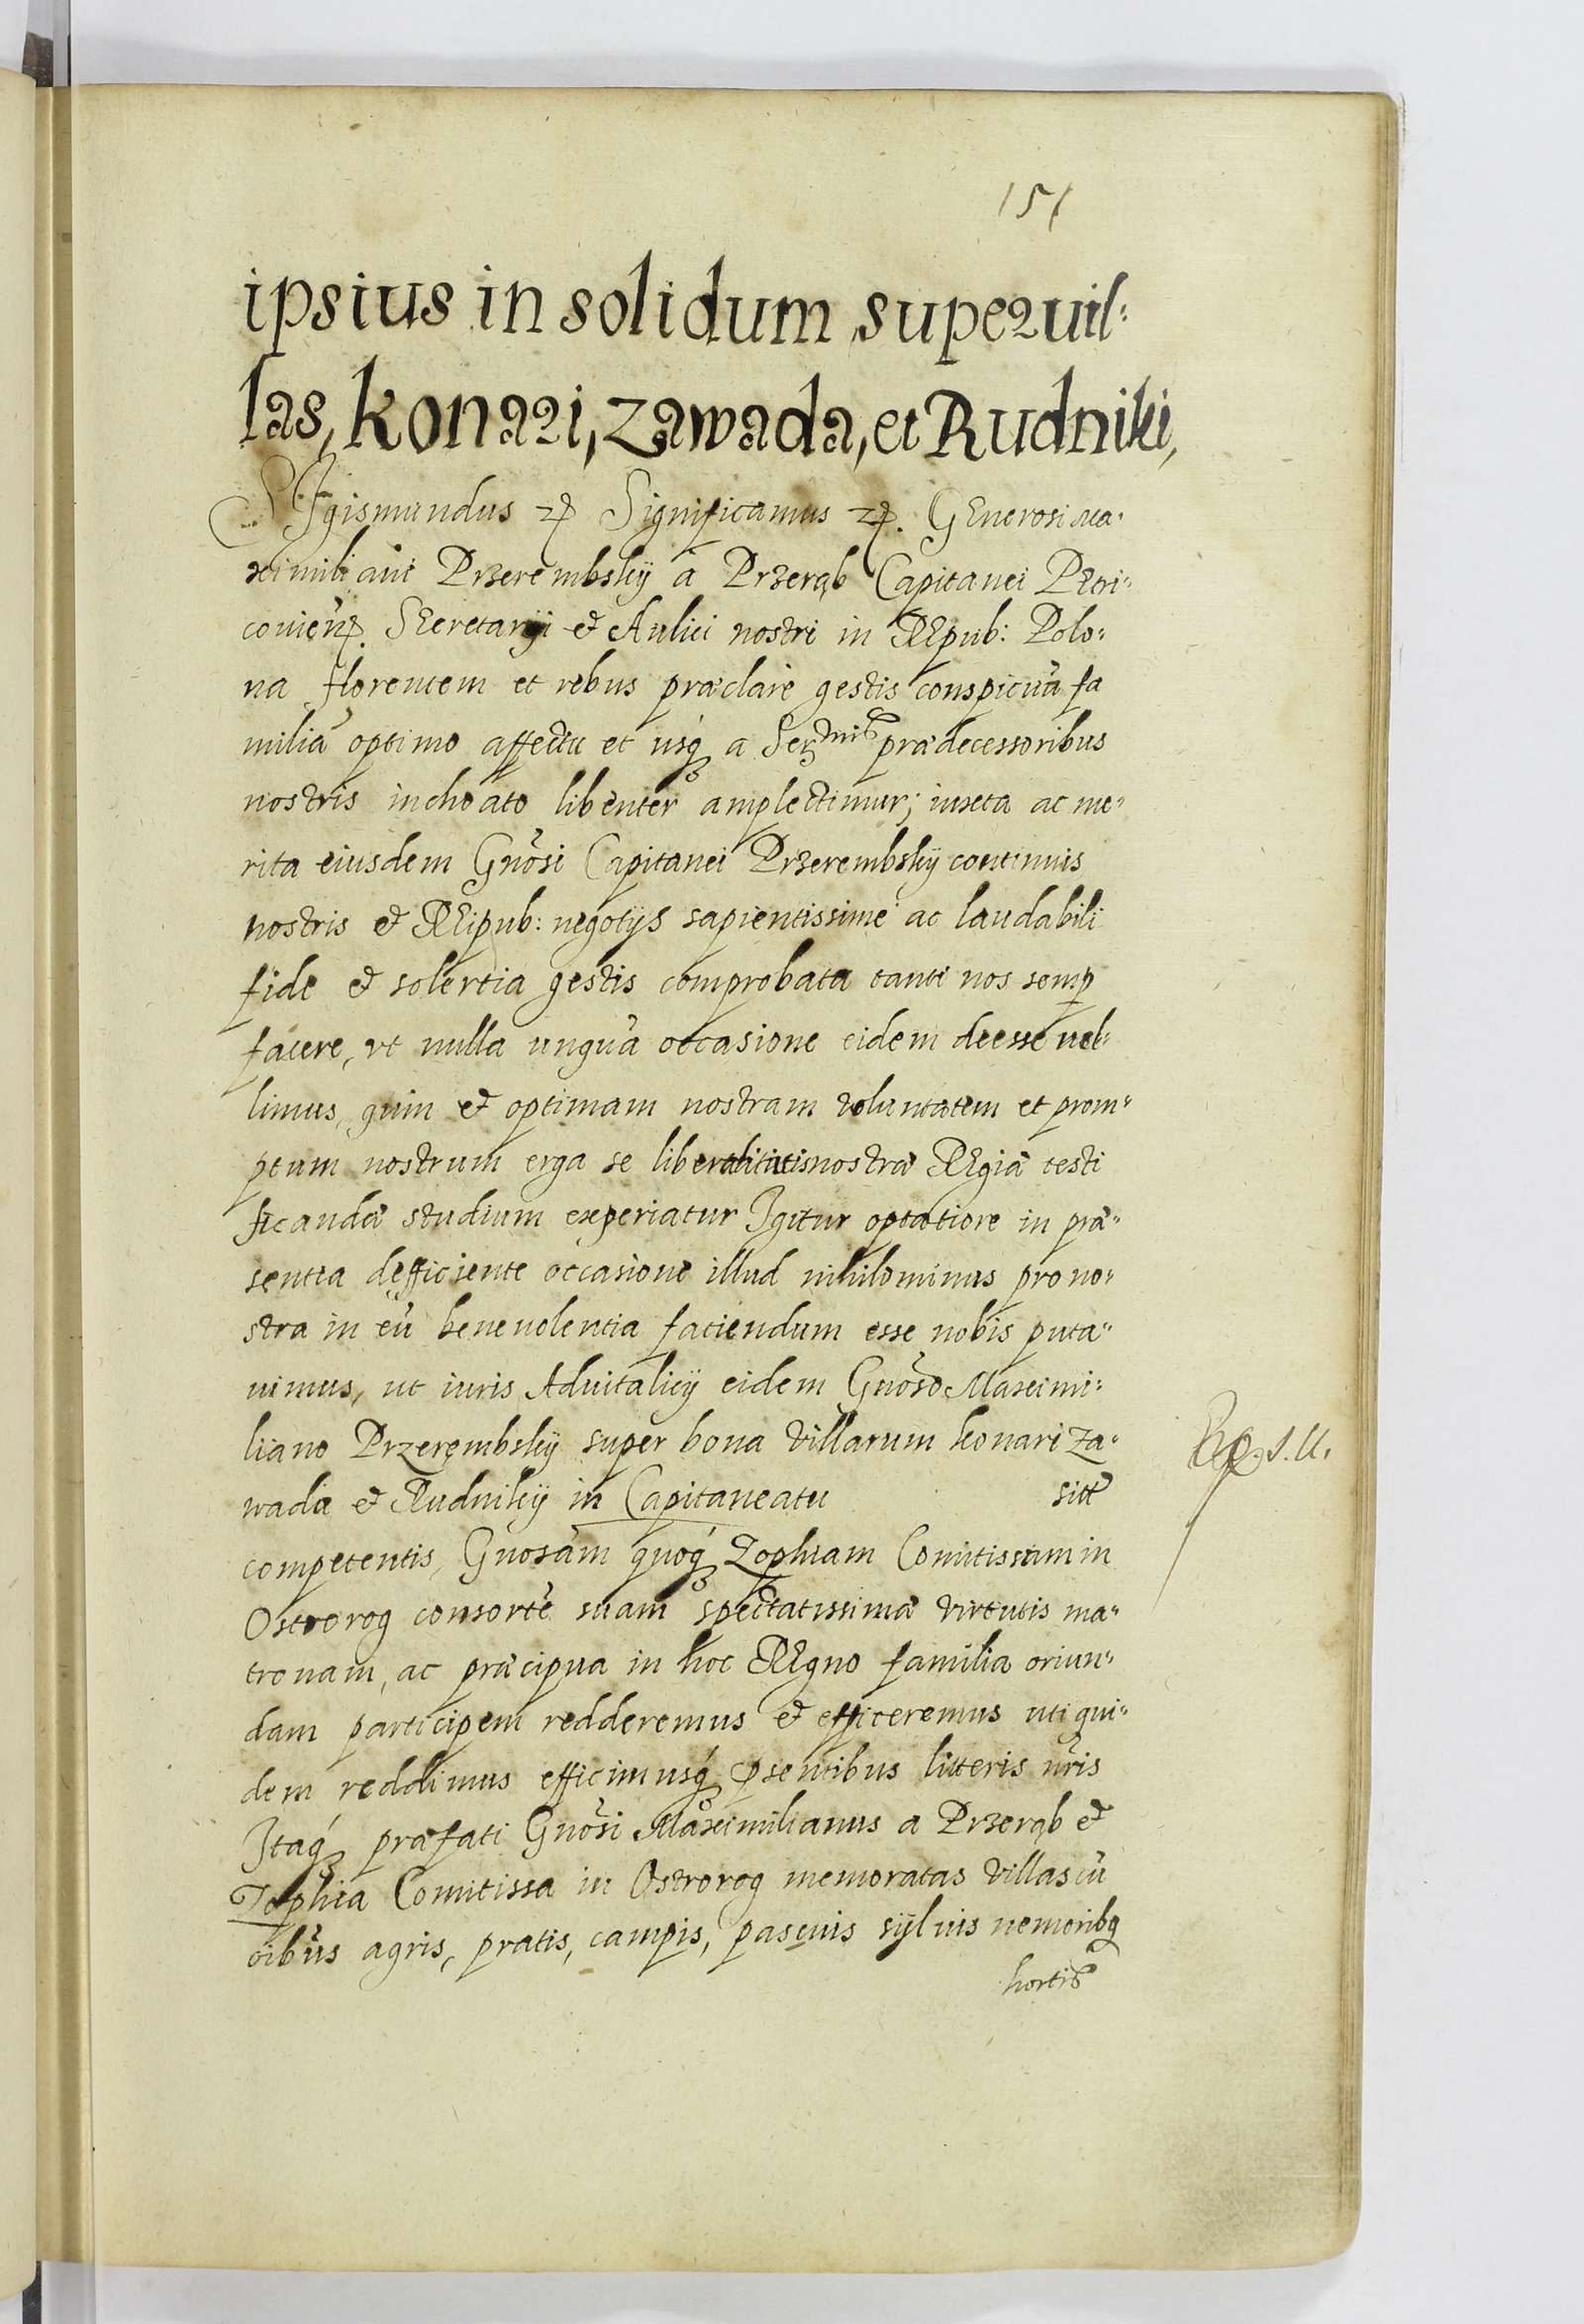 151
ipsius in solidum super uil:
las, Konari, Zawada, et Rudniki,
SIgismundus &c Significamus &c. GEnerosi Ma:
ximiliani Przerembskÿ à Przerąb Capitanei PEtri:
couien̄. SEcretarÿ & Aulici nostri in REpub: Polo:
na florentem et rebus præclare gestis conspicuā fa
miliā optimo affectu et usq́ a Ser̄mis prædecessoribus
nostris inchoato libenter amplectimur; iuxta ac me:
rita eiusdem Gnōsi Capitanei Przerembskÿ continuis
nostris & REipub: negotÿs sapientissime ac laudabili
fide & solertia gestis comprobata tanti nos semp
facere, vt nulla unquā occasione eidem deesse uel:
limus, quin & optimam nostram voluntatem et prom:
ptum nostrum erga se liberalitatis nostræ REgiæ testi
ficandæ studium experiatur Igitur optatiore in præ:
sentia defficiente occasione illud nihilominus pro no:
stra in eū beneuolentia faciendum esse nobis puta:
uimus, ut iuris Aduitalicÿ eidem Gnōso Maximi:
liano Przerembskÿ super bona villarum Konari Za:
wada & Rudnikÿ in Capitaneatu sitt̄
competentis, Gnosam quoq́ Zophiam Comitissam in
Ostrorog consortē suam spectatissimæ virtutis ma:
tronam, ac præcipua in hoc REgno familia oriun:
dam participem redderemus & efficeremus uti qui:
dem reddimus efficimusq́ p̄sentibus litteris n̄ris
Itaq́ præfati Gnōsi Maximilianus a Przerąb &
Zophia Comitissa in Ostrorog memoratas villas cū
oībus agris, pratis, campis, pascuis sÿluis nemoribq
hortis